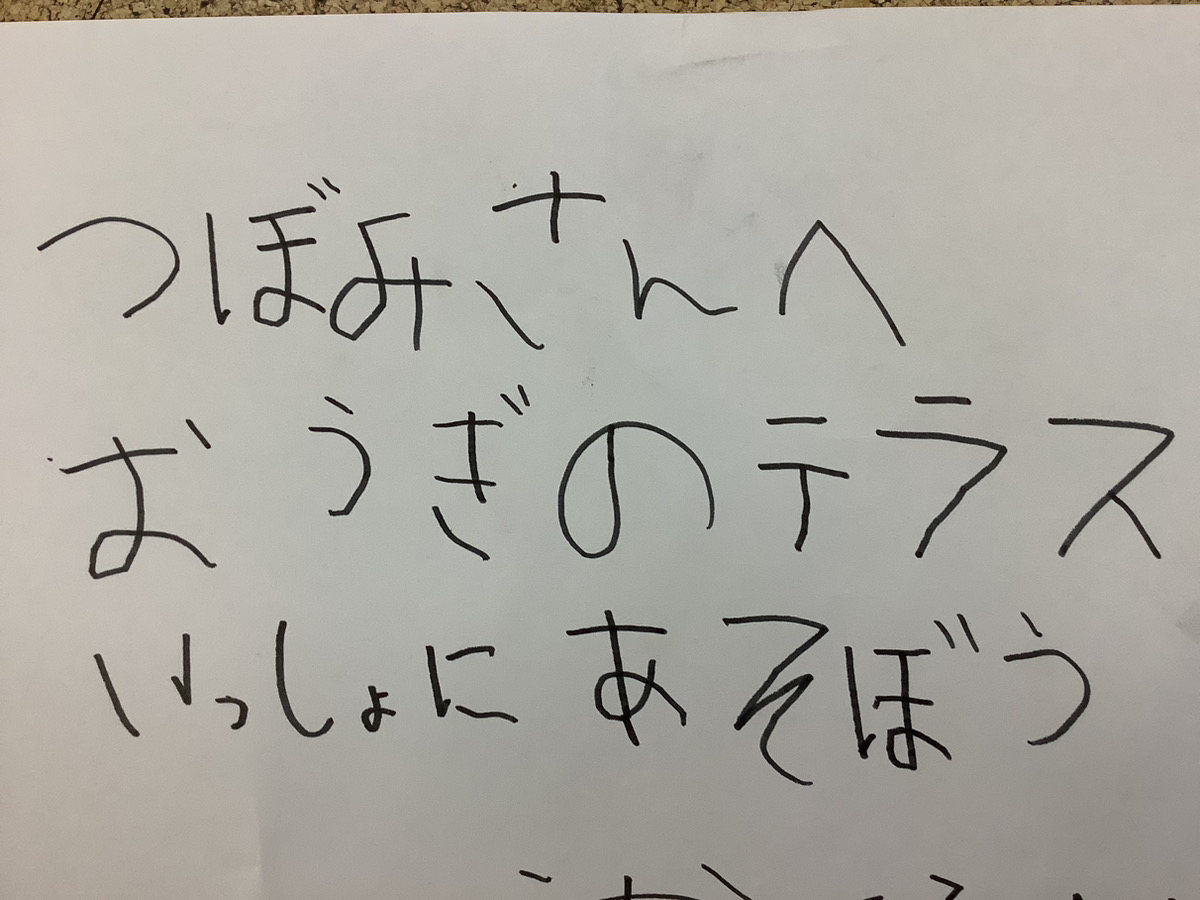 つぼみさんへ
おうぎのテラス
いっしょにあそぼう